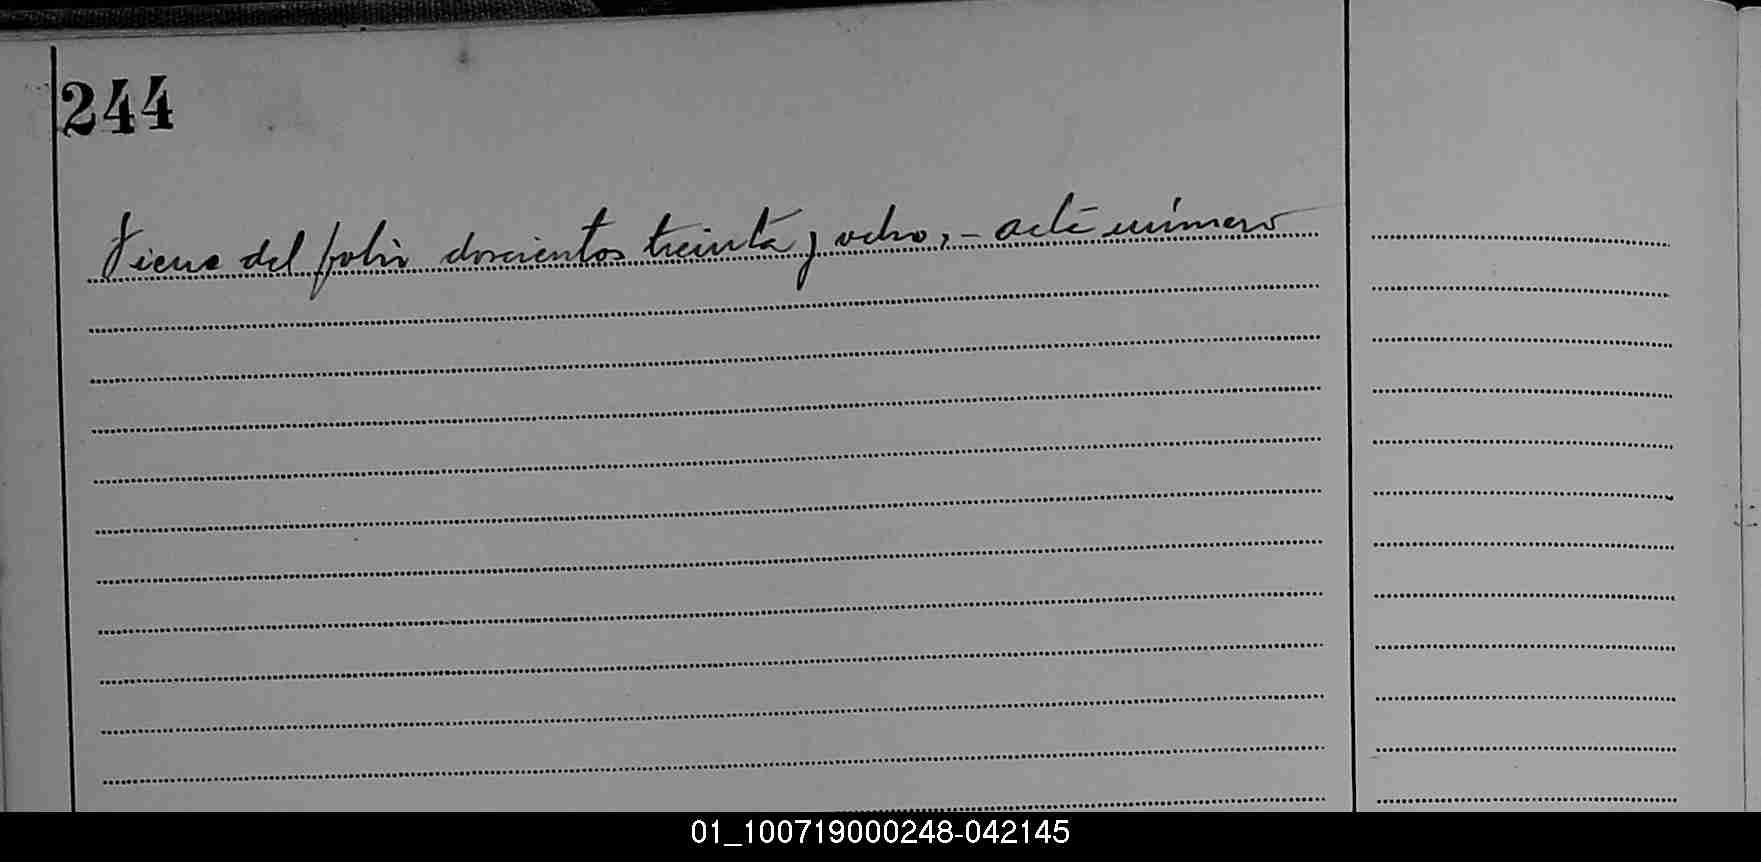 244
Viene del folio doscientos treinta y ocho, - acta número
01_100719000248-042145